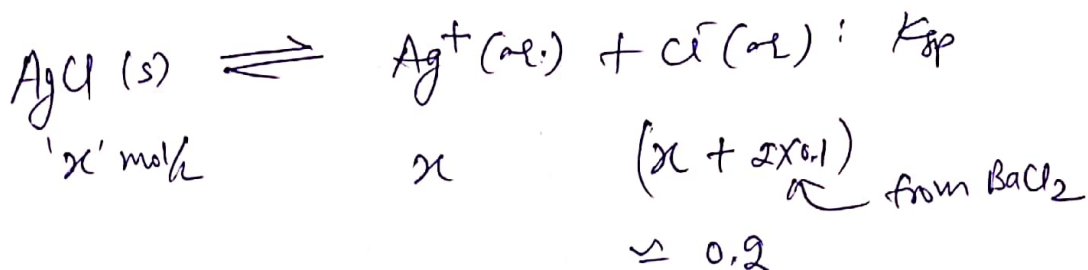 AgCl (s) ⇌ Ag⁺ (aq.) + Cl⁻ (aq) : Ksp
'x' mol/L x (x + 2×0.1)
from BaCl₂
≃ 0.2